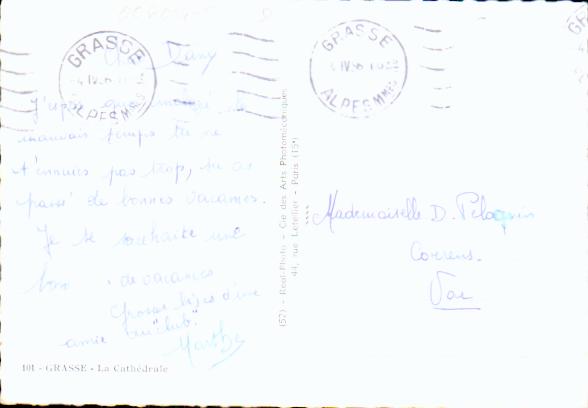 GRASSE
ALPES MMES
Dany
J'espère que malgré le
mauvais temps tu ne
t'ennuies pas trop, tu as
passé de bonnes vacances.
Je te souhaite une
de vacances
Grosses bises d'une
amie du "club".
Marthe
101 - GRASSE - La Cathédrale
(57) - Real-Photo - Cie des Arts Photomécaniques
44, rue Letellier - Paris (15e)
GRASSE
ALPES MMES
Mademoiselle D. Pelaquin
Correns.
Var